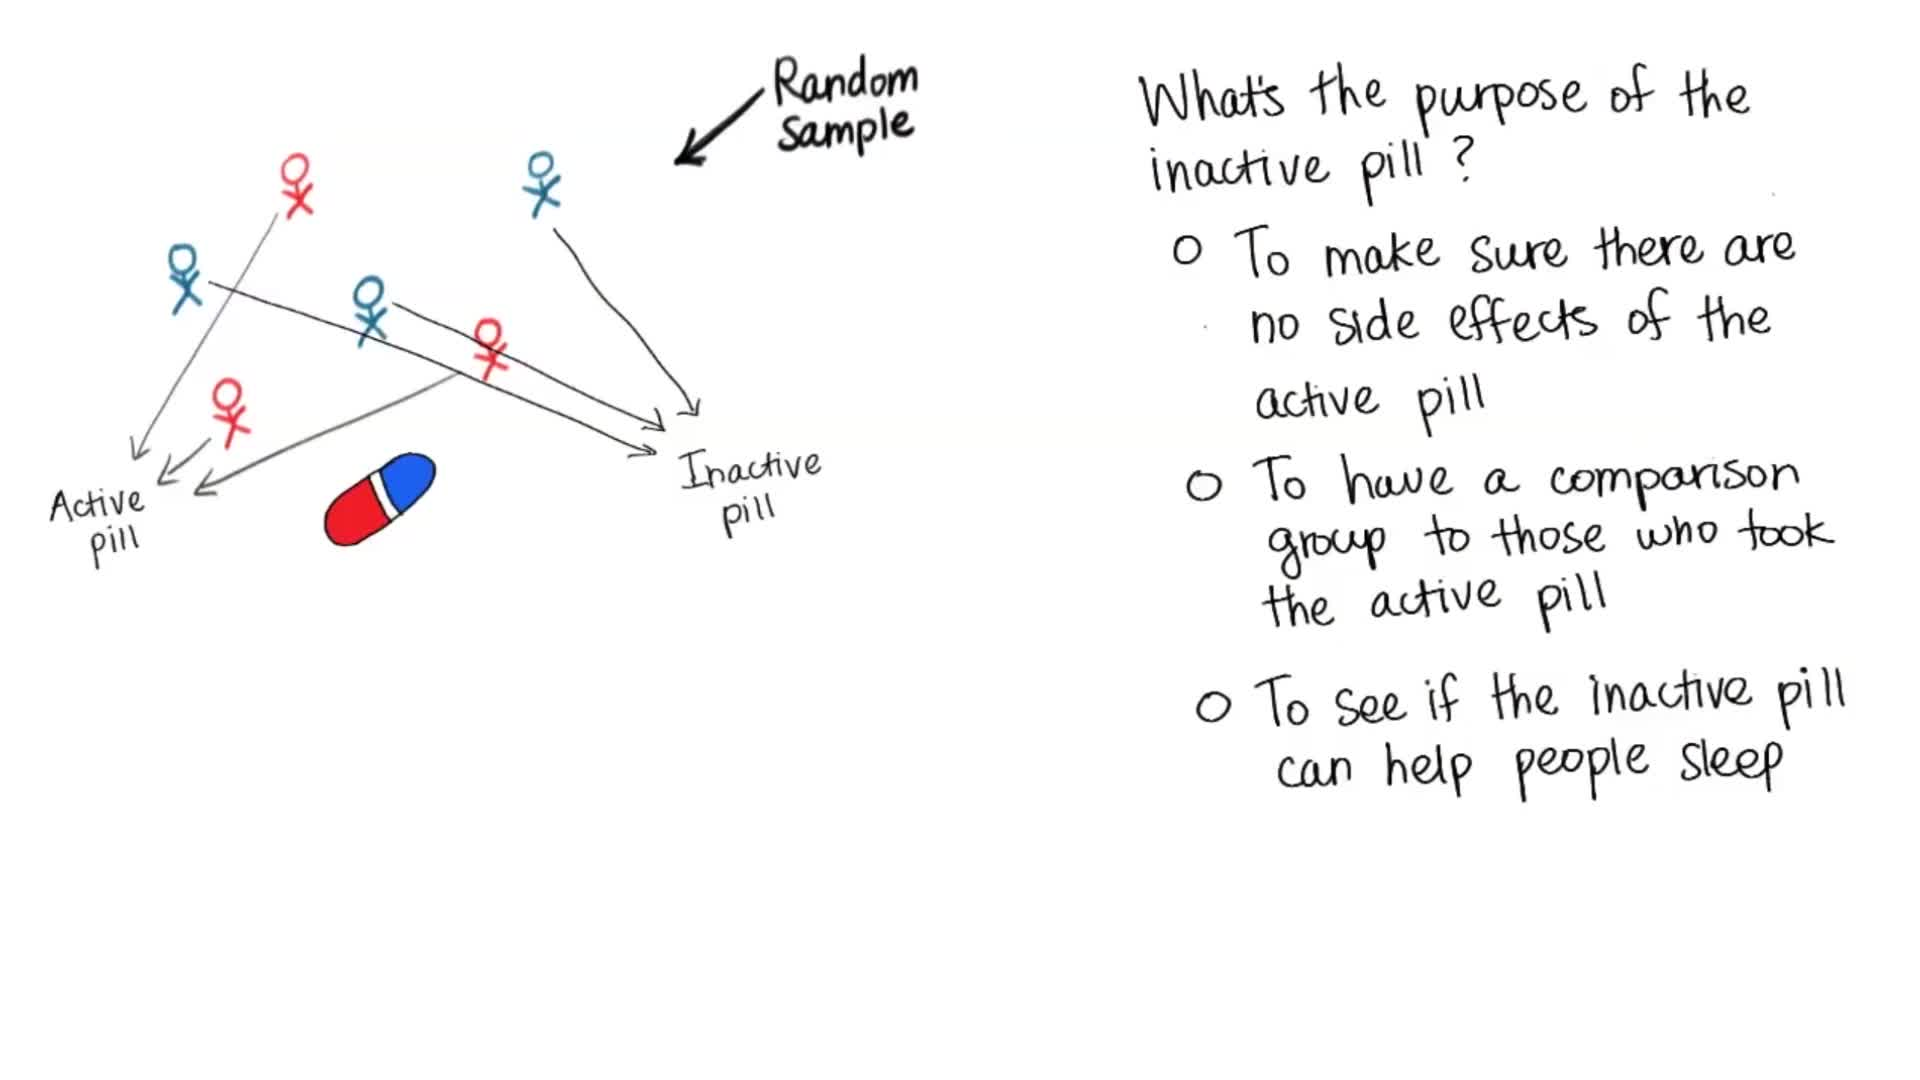 Random
sample
Active
pill
Inactive
pill
What's the purpose of the
inactive pill ?
O To make sure there are
no side effects of the
active pill
O To have a comparison
group to those who took
the active pill
O To see if the inactive pill
can help people sleep